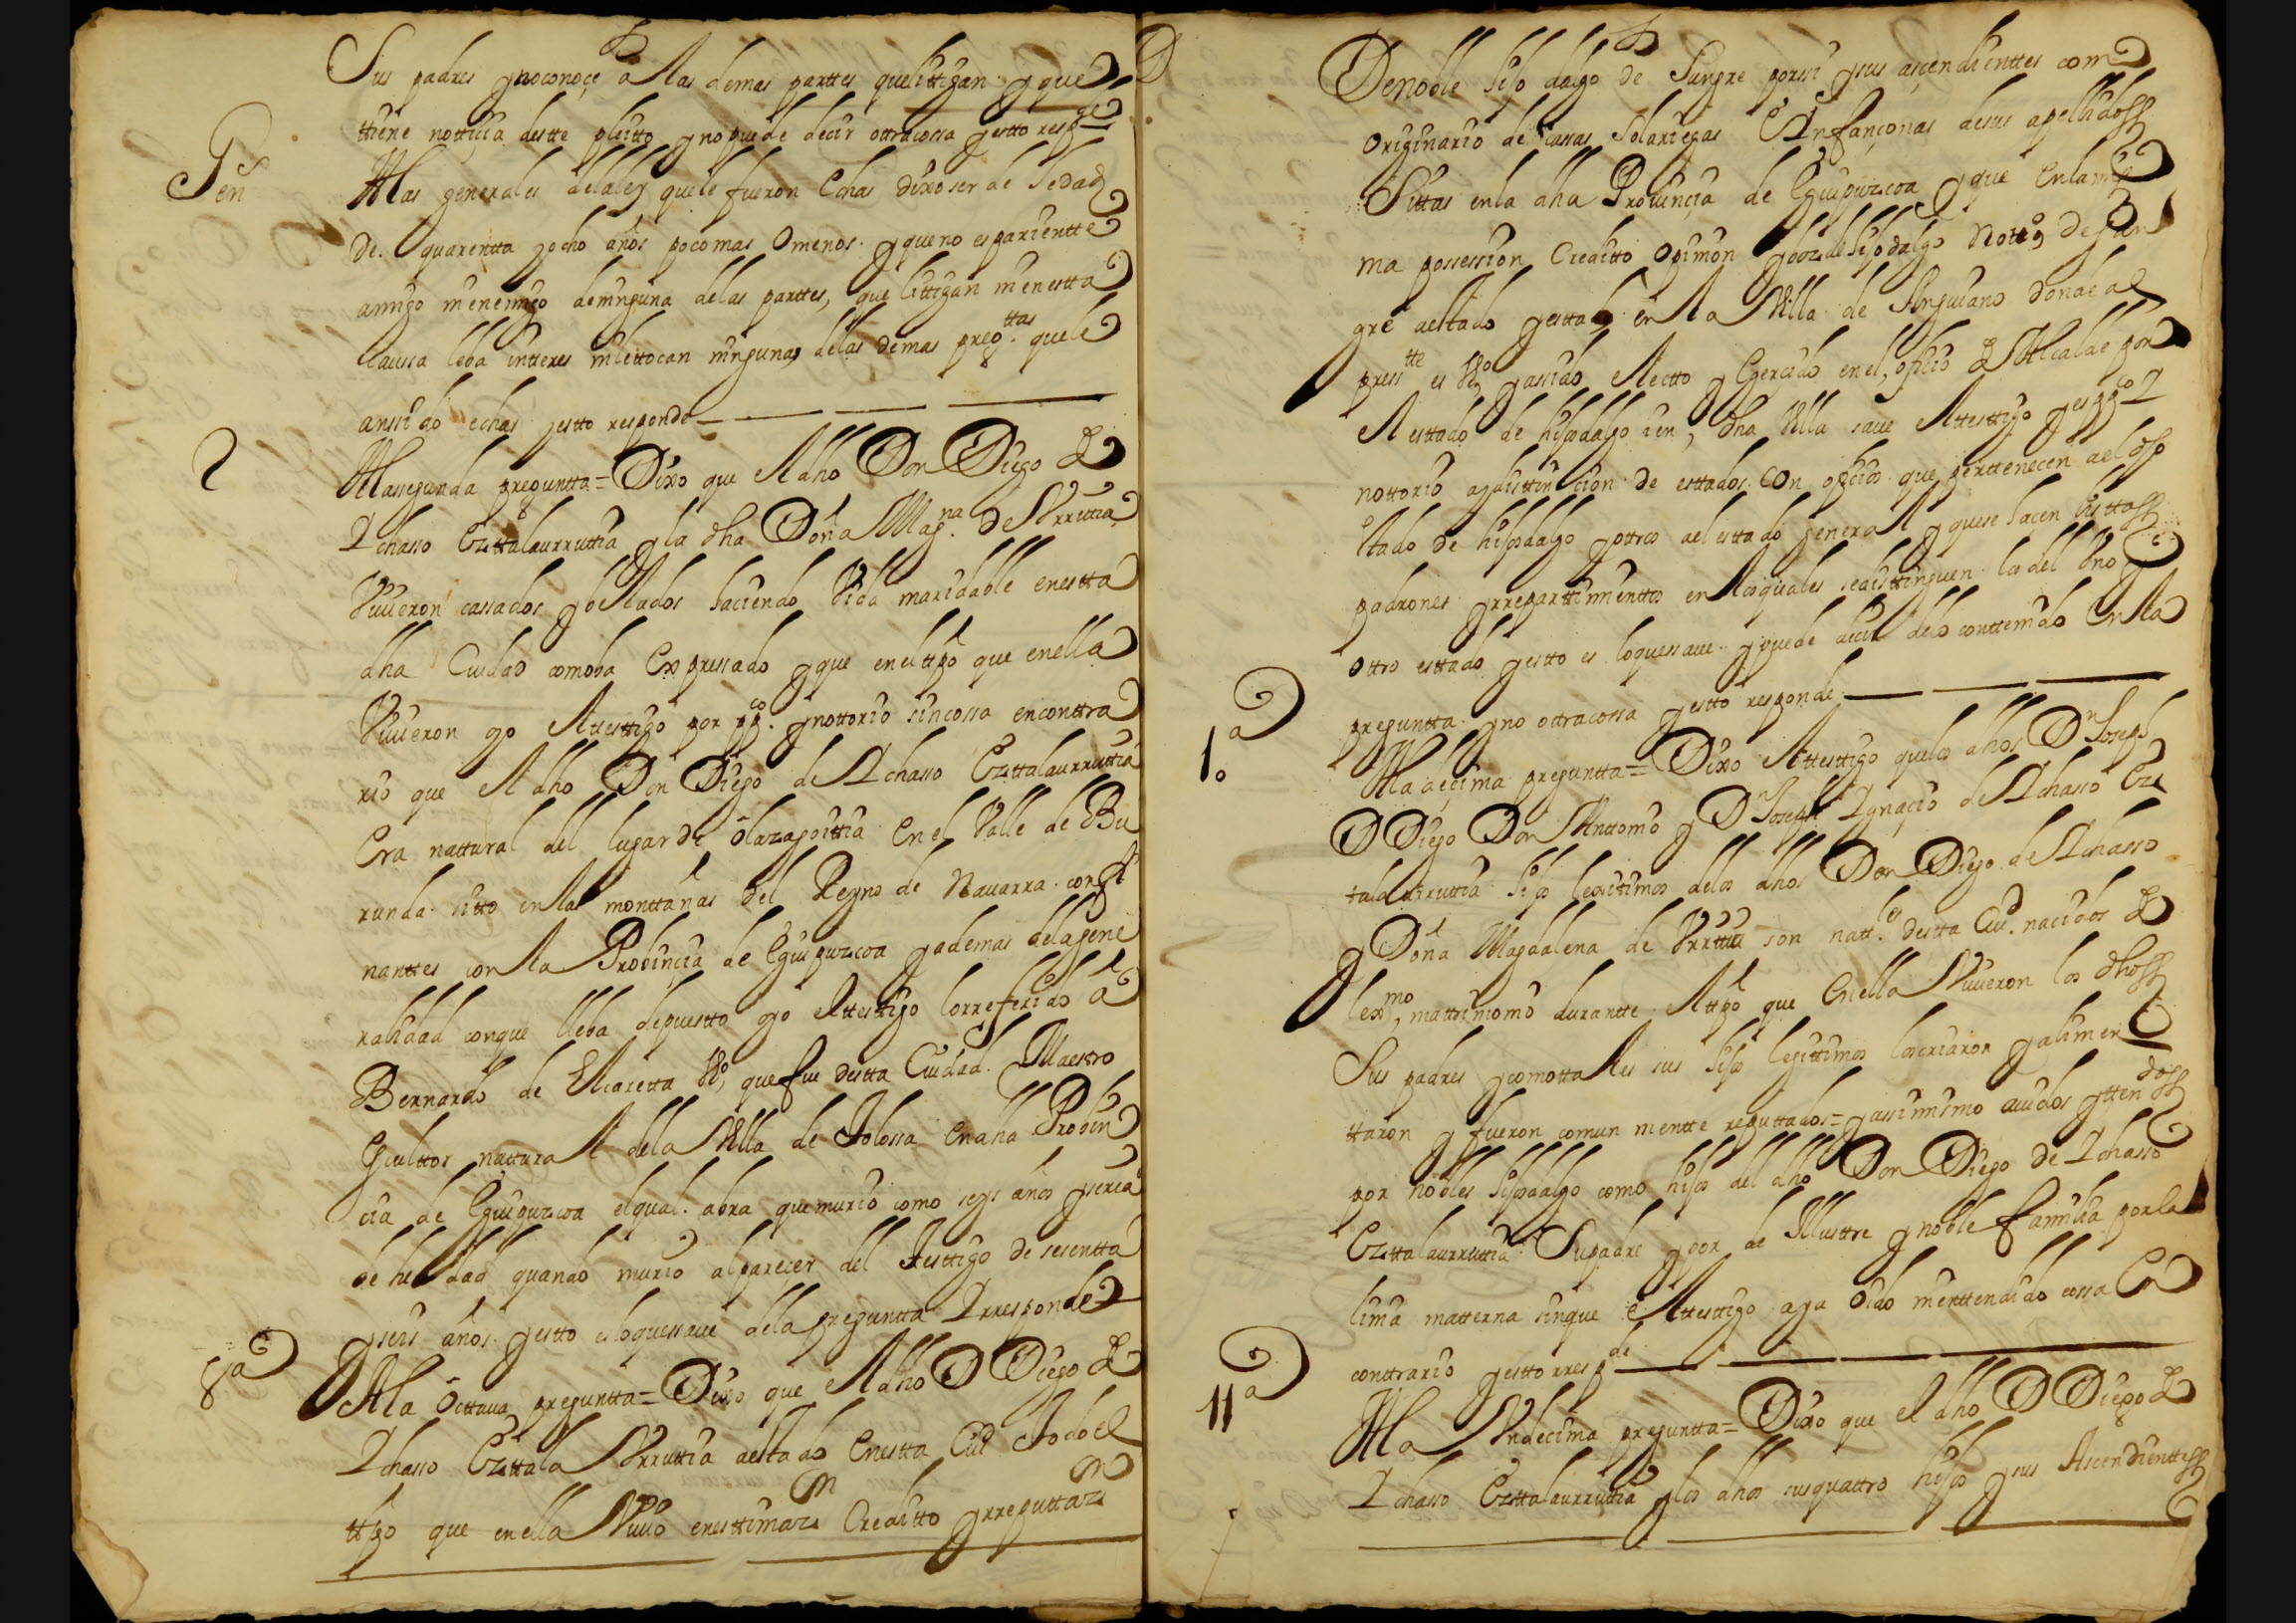 Sus padres y no conoçe a las demas parttes que littigan y que
ttiene notticia destte pleitto y no puede decir ottra cossa y estto resp.de
Gen
A las generales de la ley que le fueron echas dixo ser de hedad
de quarentta y ocho años poco mas o menos y que no es parientte
amigo ni enemigo de ninguna de las parttes, que littigan ni en estta
caussa lleba intteres ni le ttocan ningunas de las demas preg.ttas que le
an sido echas y estto responde
2
A la segunda preguntta = Dixo que el dho Don Diego de
Ichasso Ezttalaurruttia y la dha Doña Mag.na de Urruttia
Viuieron cassados y belados haciendo Vida maridable en estta
dha Ciudad como ba Expressado y que en el ttpo que en ella
Viuieron oyo el ttesttigo por pp.co y nottorio sin cossa en conttra
rio que el dho Don Diego de Ichasso Ezttalaurruttia
Era nattural del lugar de Olazagoittia En el Valle de Bu
runda sitto en las monttañas del Reyno de Nauarra confi
nanttes con la Probinçia de Eguipuzcoa y ademas de la gene
ralidad con que lleba depuestto oyo el ttesttigo lo rreferido a
Bernardo de Elcaretta Vº, que fue destta Ciudad Maestro
Esculttor nattural de la Villa de Tolossa En dha Probin
cia de Eguipuzcoa el qual abra que murio como seys años y seria
de hedad quando murio al pareçer del Testtigo de sesentta
y seis años y estto es lo que saue de la preguntta Y rresponde
8ª
A la Octtaua preguntta = Dixo que el dho D Diego de
Ichasso Ezttala Urruttia a estado En estta Ciud Todo el
ttpo que en ella Viuio en esttimaz.on Creditto y rreputtaz.on
De noble hijo dalgo de Sangre por si y sus asçendienttes como
Originario de cassas Solariegas E Infançonas de sus apellidos
Sittas en la dha Prouinçia de Eguipuzcoa y que En la mis
ma possession Creditto Opinion y boz de hijodalgo Nottº, de San
gre a estado y estta en la Villa de Anguiano donde al
press.tte es Vº, y a ssido electto y Exercido en el, oficio de Alcalde por
el esttado de hijosdalgo en, dha Villa saue el ttesttigo y es pp.co y
nottorio ay disttincion de esttados Con oficios que perttenecen a el es
tado de hijosdalgo y ottros a el esttado general y que se hacen listtas
padrones y rreparttimienttos en los quales se disttinguen los del Uno y
ottro esttado y estto es lo que saue y puede decir de lo conttenido En la
preguntta y no ottra cossa y estto responde
10ª
A la deçima preguntta = Dixo el ttesttigo que los dhos D.n Joseph
D Diego Don Anttonio y D.n Joseph Ygnaçio de Ichasso Ez
ttalaurruttia hijos lexitimos de los dhos Don Diego de Ichasso
y Doña Magdalena de Urruttia son natt.es destta Ciu.d nacidos de
lex.mo, mattrimonio durantte el ttpo que En ella Viuieron los dhos
Sus padres y como ttales sus hijos legittimos los criaron y alimen
ttaron y fueron comun mentte reputtados = y assimismo auidos y ttenidos
por nobles hijosdalgo como hijos del dho Don Diego de Ichasso
Ezttalaurruttia Su padre y por de Illusttre y noble familia por la
linia matterna sin que el ttesttigo aya oido ni enttendido cossa En
conttrario y estto rresp.de
11ª
A la Undecima preguntta = Dixo que el dho D Diego de
Ichasso Ezttalaurruttia y los dhos sus quattro hijos y sus Ascendienttes